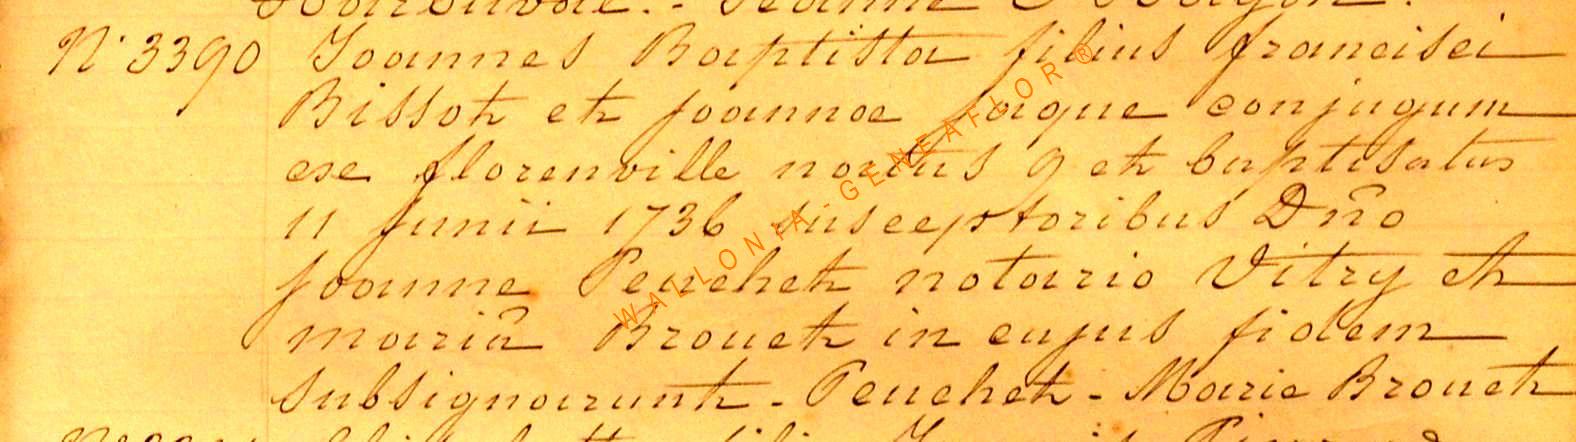 Jeanne
N° 3390 Joannes Baptista filius francisci
Bissot et joannae jaque conjugum
ex florenville natus 9 et baptisatus
11 junii 1736 susceptoribus Dño
joanne Peuchet notario Vitry et
mariâ Brouet in cujus fidem
subsignarunt - Peuchet - Marie Brouet
WALLONIA-GENEAFLOR®